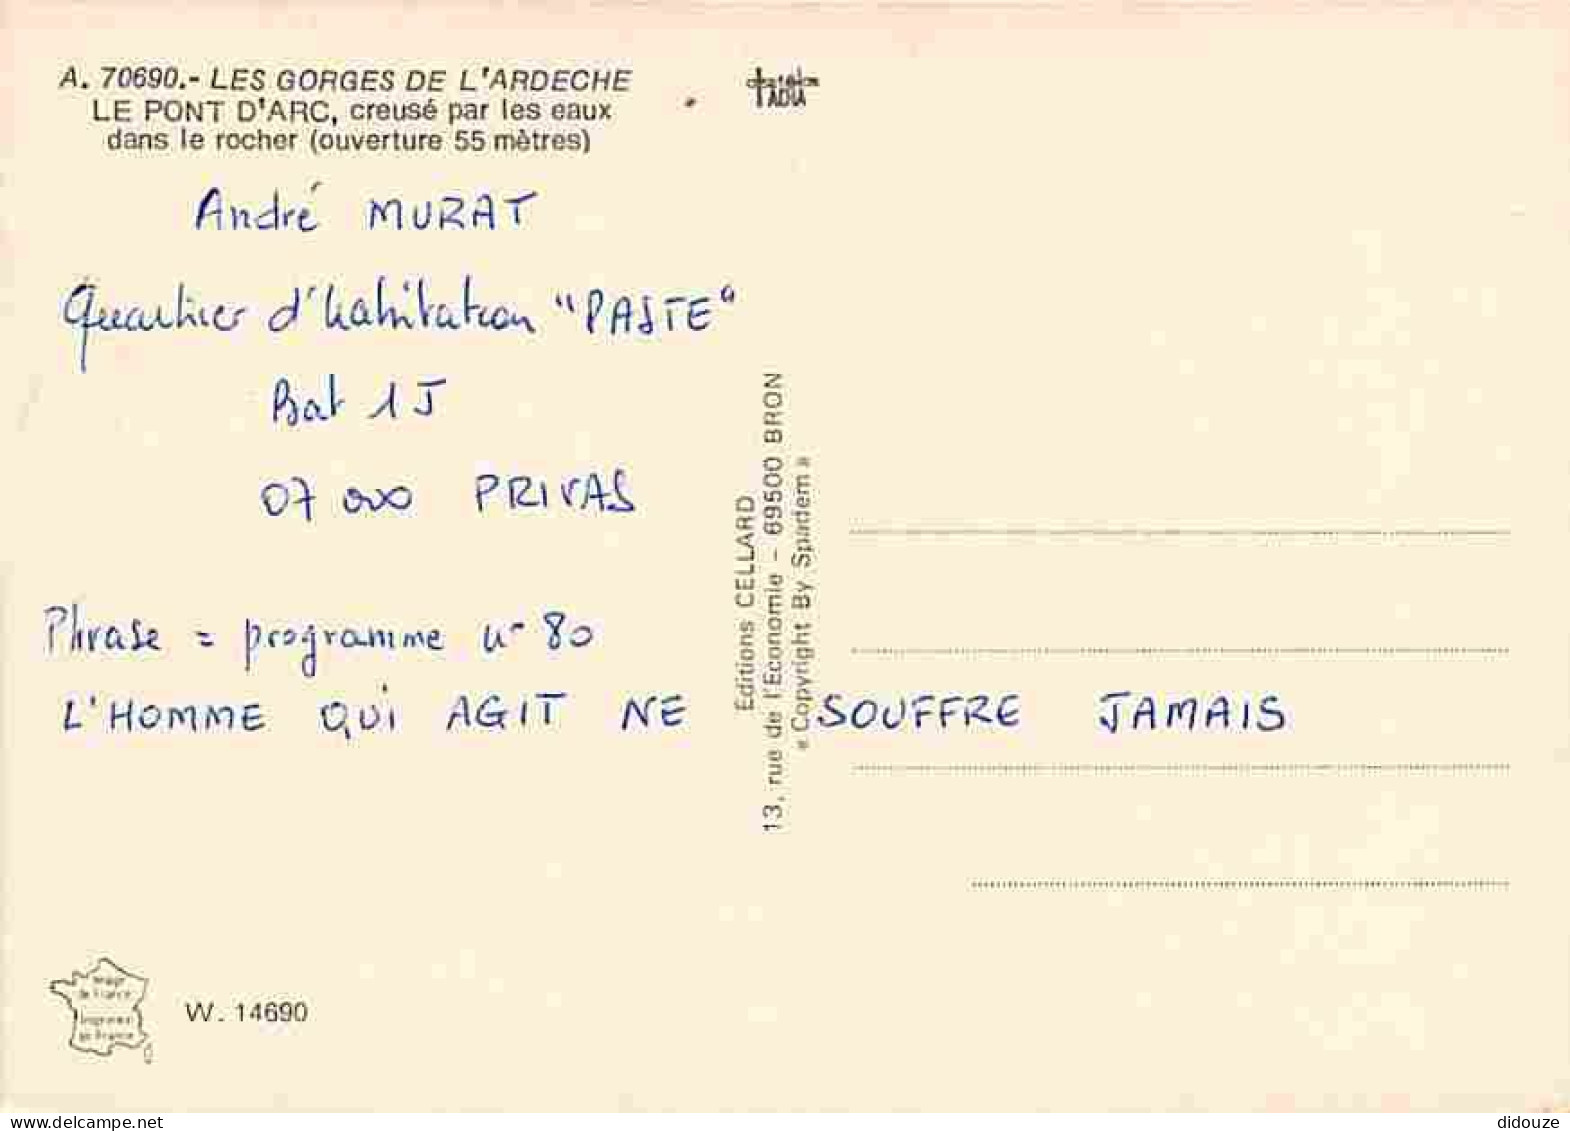 A. 70690.- LES GORGES DE L'ARDECHE
LE PONT D'ARC, creusé par les eaux
dans le rocher (ouverture 55 mètres)
IADIA
André MURAT
Quartier d'habitation "PASTE"
Bat 1J
07 000 PRIVAS
Phrase = programme n° 80
L'HOMME QUI AGIT NE SOUFFRE JAMAIS
Editions CELLARD
13, rue de l'Economie - 69500 BRON
« Copyright By Spadem »
Image
de France
Imprimerie
de France
W. 14690
didouze
www.delcampe.net